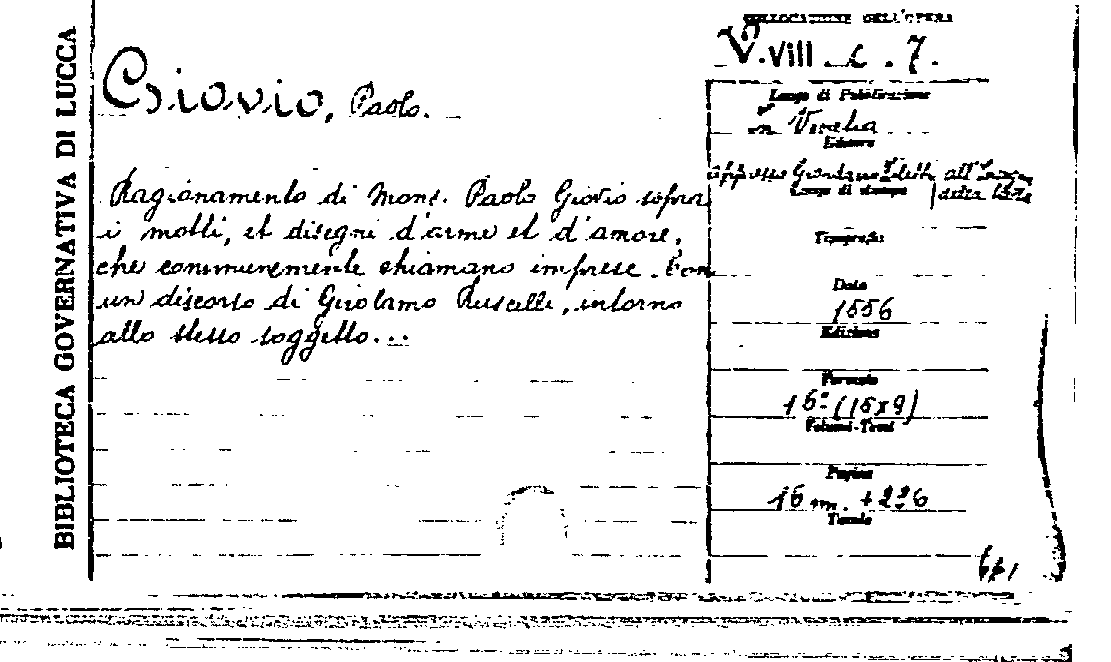 BIBLIOTECA GOVERNATIVA DI LUCCA
COLLOCAZIONE DELL'OPERA
V. VIII . c . 7.
Giovio, Paolo.
Luogo di Pubblicazione
in Venetia
Editore
appresso Giordano Ziletti all'
della
Luogo di stampa
Ragionamento di Mons. Paolo Giovio sopra
i motti, et disegni d'arme et d'amore,
che communemente chiamano imprese. Con
un discorso di Girolamo Ruscelli, intorno
allo stesso soggetto...
Tipografia
Data
1556
Edizione
Formato
16º (15x9)
Volumi-Tomi
Pagine
16 m. + 226
Tavole